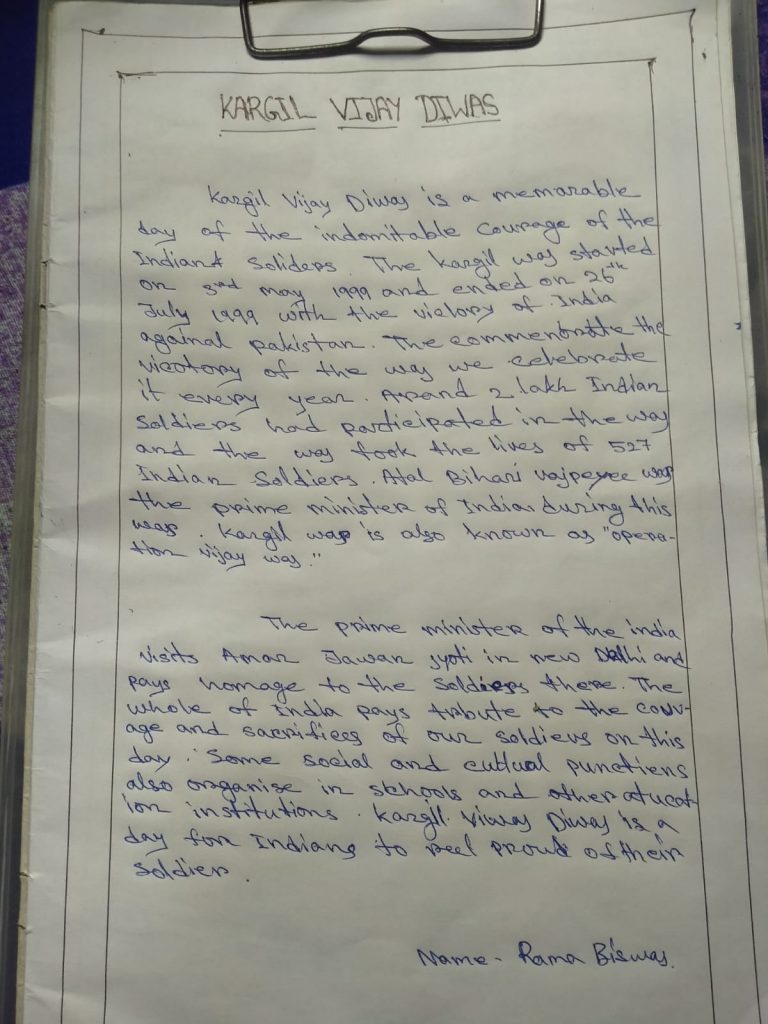 KARGIL VIJAY DIWAS
Kargil Vijay Diwas is a memorable
day of the indomitable courage of the
Indian Soliders. The kargil was started
on 3rd may 1999 and ended on 26th
July 1999 with the victory of India
against pakistan. The commembrate the
vicotory of the way we celebrate
it every year. Arand 2 lakh Indian
Soldiers had participated in the way
and the way took the lives of 527
Indian Soldiers. Atal Bihari vajpeyee was
the prime minister of India during this
war. Kargil war is also known as "opera-
tion vijay was."
The prime minister of the india
visits Amar Jawan jyoti in new Delhi and
pays homage to the Soldiers there. The
whole of India pays tribute to the cour-
age and sacrifices of our soldiers on this
day. Some social and cutlual punctiens
also organise in schools and other aducat
ion institutions. Kargil Viway Diway is a
day for Indians to peel proud of their
soldier.
Name - Rama Biswas.